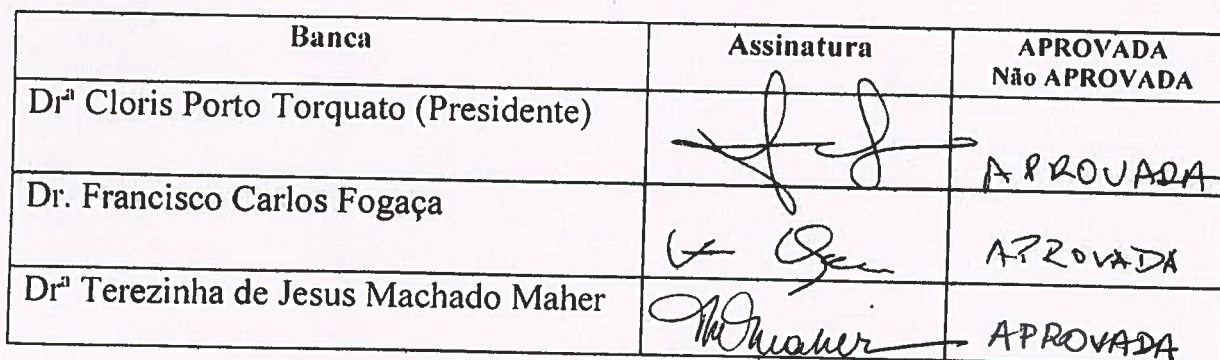 Banca Assinatura APROVADA
Não APROVADA
Drª Cloris Porto Torquato (Presidente) APROVADA
Dr. Francisco Carlos Fogaça APROVADA
Drª Terezinha de Jesus Machado Maher Maher APROVADA